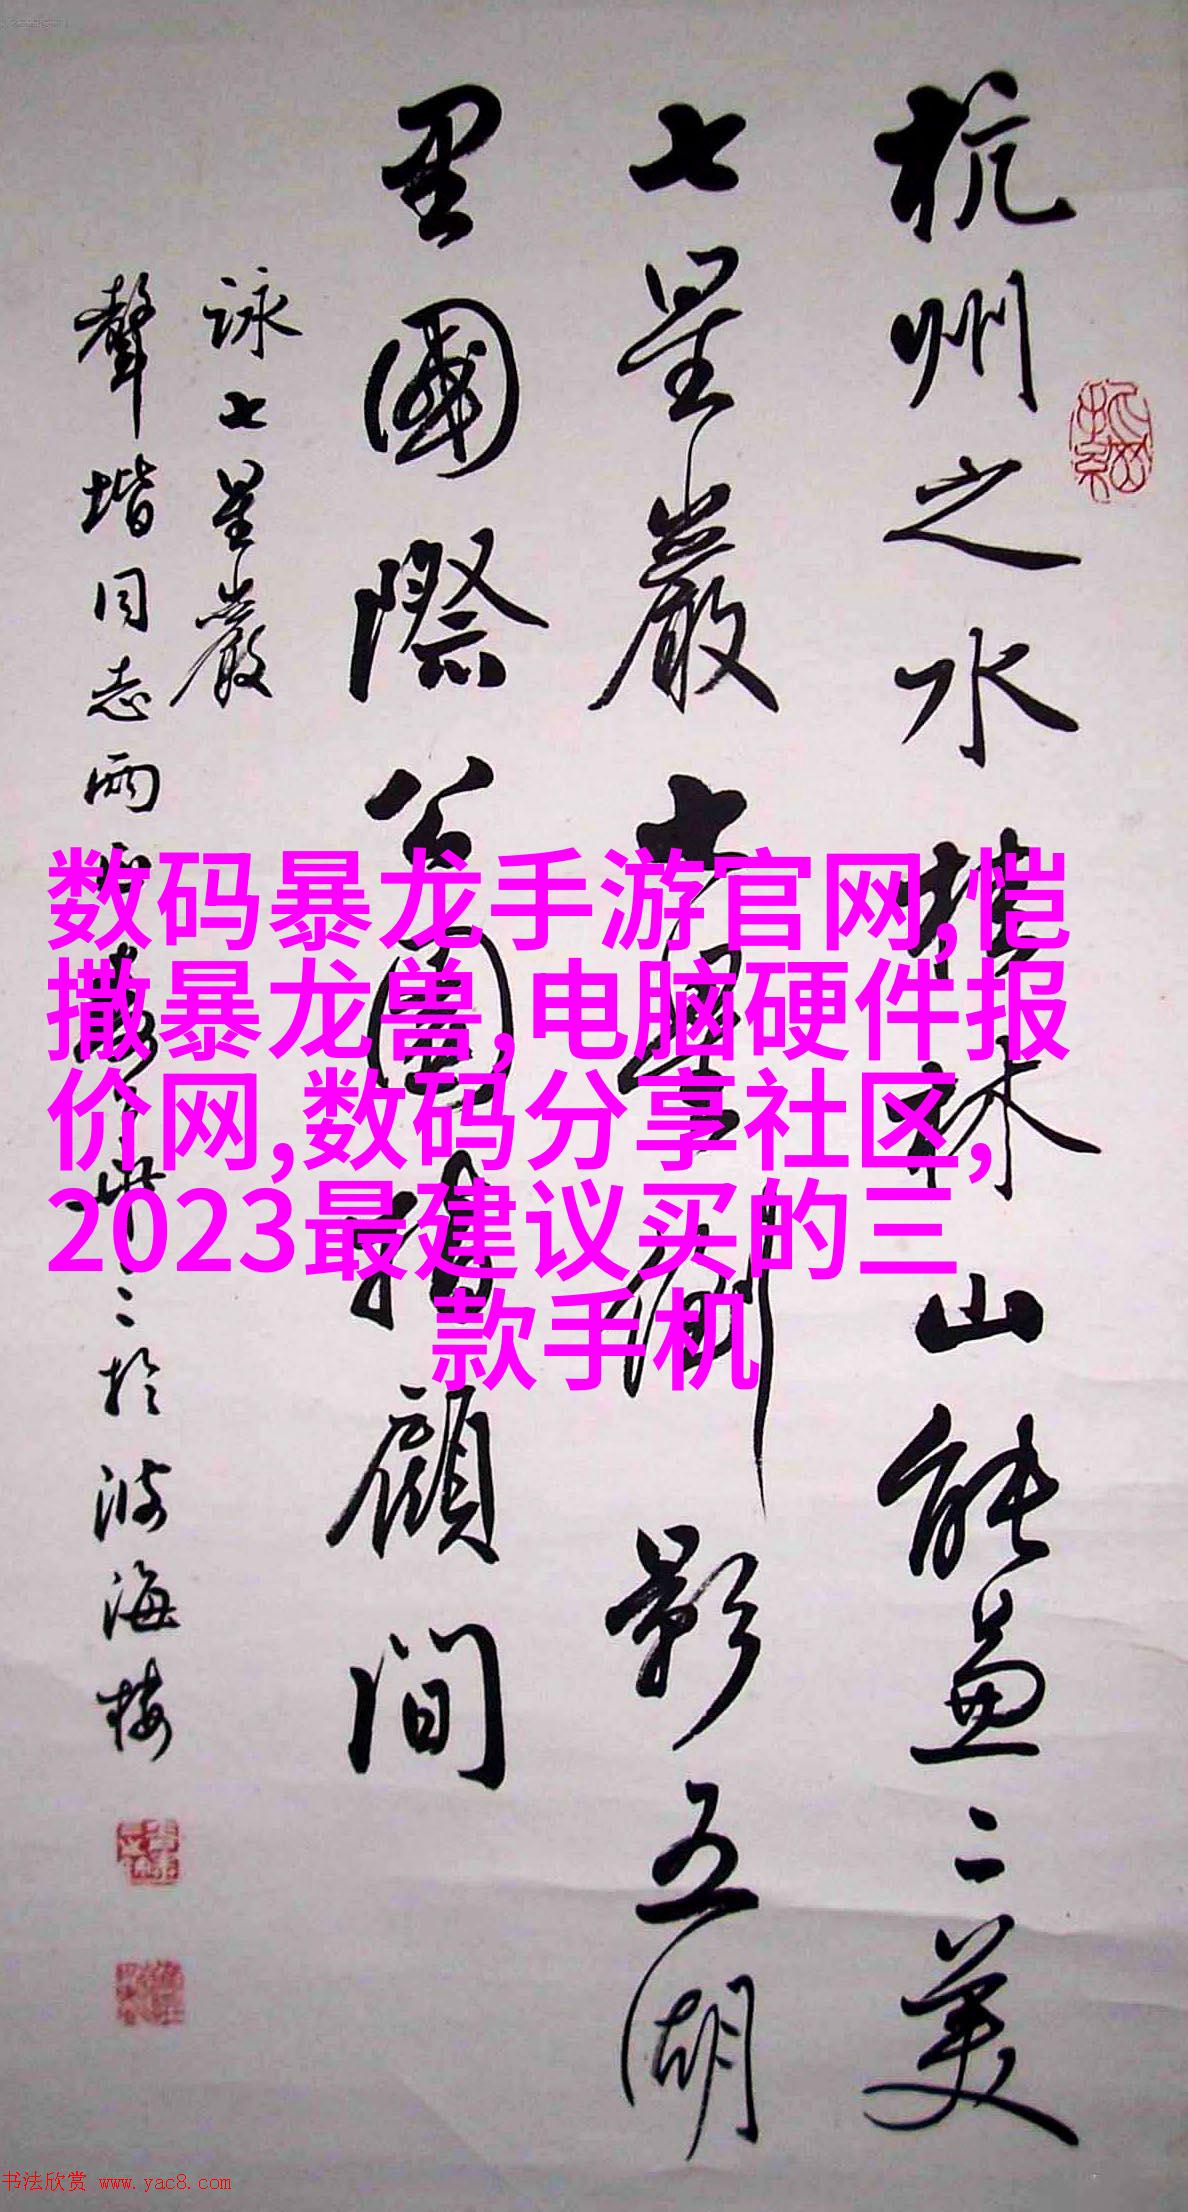 杭州之水桂林山能兼二美
七星巖七星湖影五湖
里國際公園指顧間
詠七星巖
聲堦同志兩
於波海樓
数码暴龙手游官网,恺
撒暴龙兽,电脑硬件报
价网,数码分享社区,
2023最建议买的三
款手机
书法欣赏 www.yac8.com